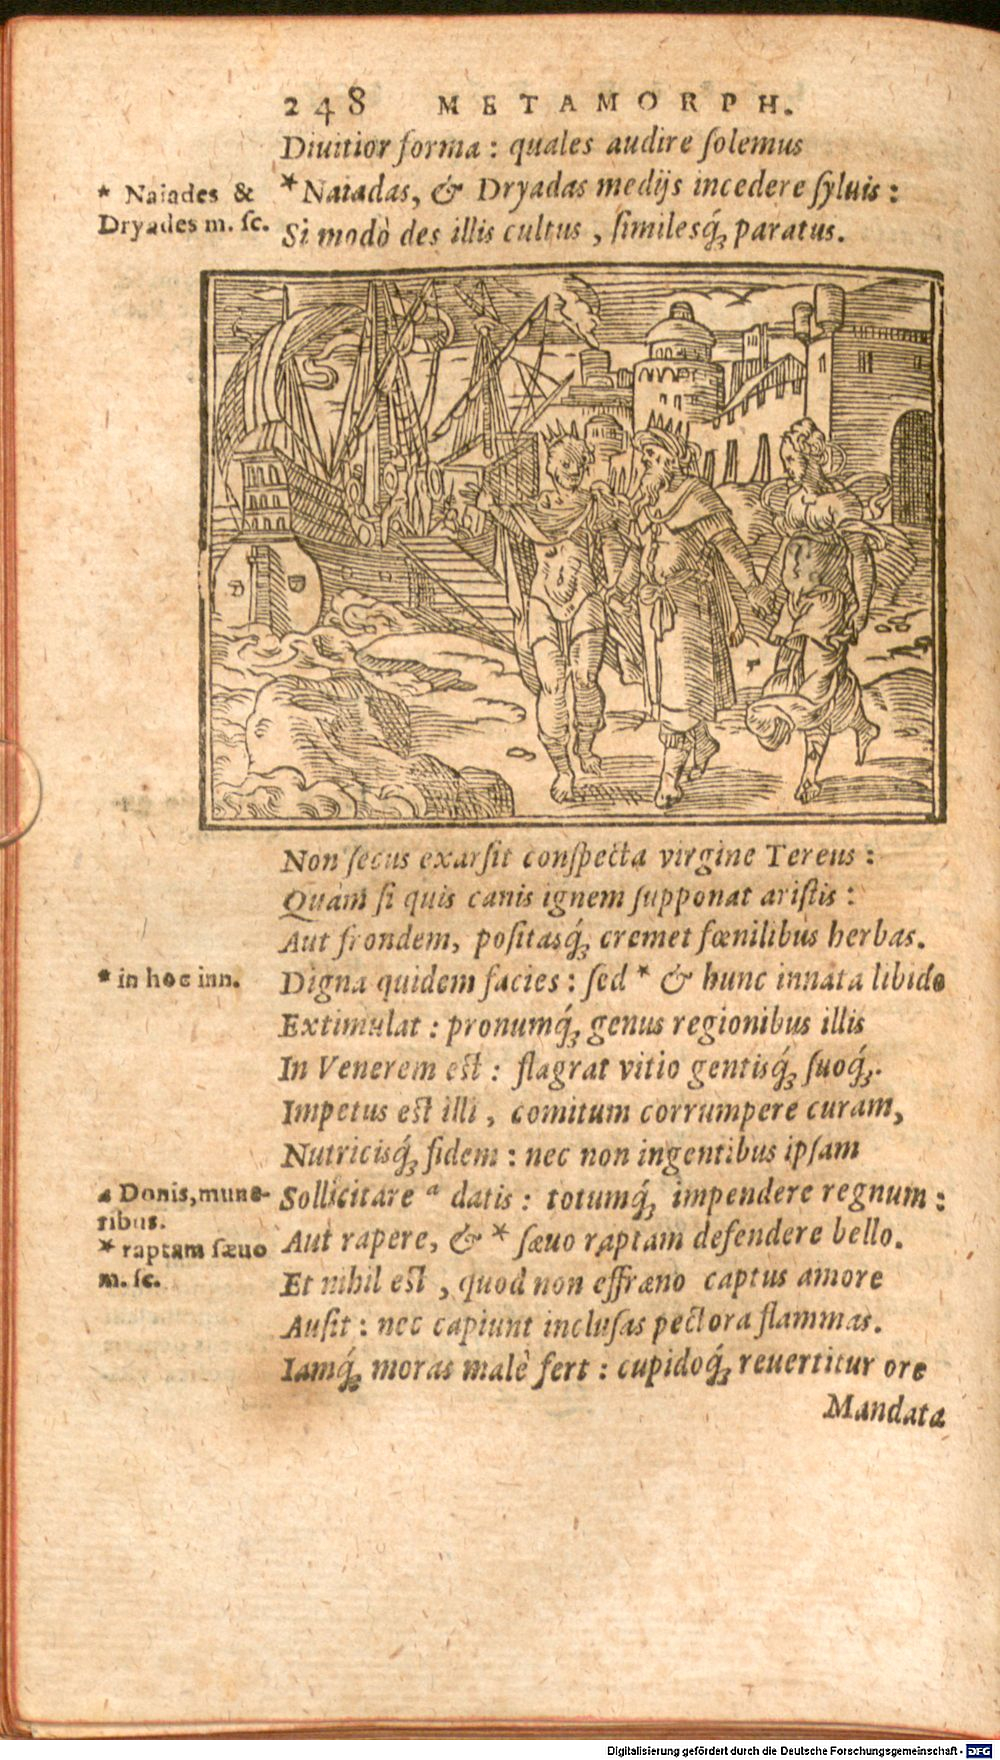 248 METAMORPH.
Diuitior forma : quales audire ſolemus
* Naiades &
Dryades m. ſc.
*Naiadas, & Dryadas medijs incedere ſyluis :
Si modò des illis cultus , ſimilesq́; paratus.
Non ſecus exarſit conſpecta virgine Tereus :
Quàm ſi quis canis ignem ſupponat ariſtis :
Aut frondem, poſitasq́; cremet fœnilibus herbas.
* in hoc inn.
Digna quidem facies : ſed * & hunc innata libido
Extimulat : pronumq́; genus regionibus illis
In Venerem eſt : flagrat vitio gentisq́; ſuoq́;.
Impetus eſt illi , comitum corrumpere curam,
Nutricisq́; fidem : nec non ingentibus ipſam
a Donis, mune-
ribus.
* raptam ſæuo
m. ſc.
Sollicitare ª datis : totumq́; impendere regnum :
Aut rapere, & * ſæuo raptam defendere bello.
Et nihil eſt , quod non effræno captus amore
Auſit : nec capiunt incluſas pectora flammas.
Iamq́; moras malè fert : cupidoq́; reuertitur ore
Mandata
Digitalisierung gefördert durch die Deutsche Forschungsgemeinschaft - DFG